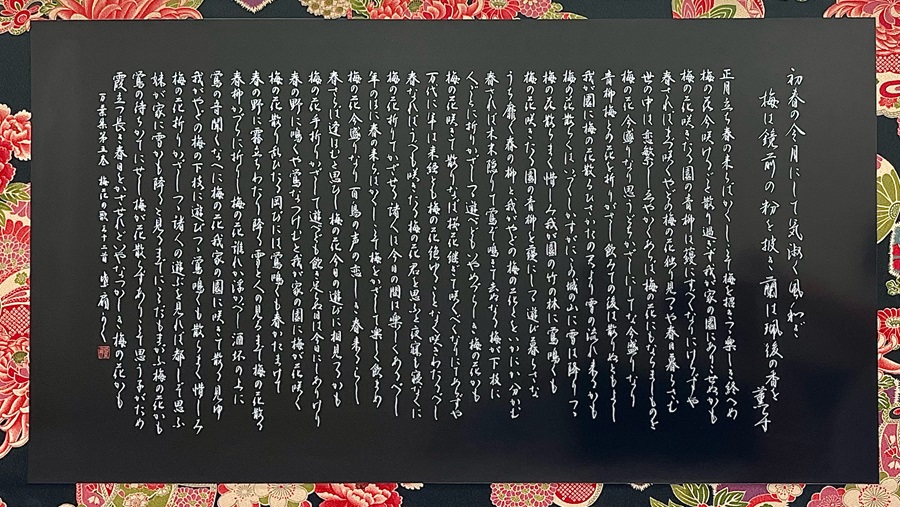 初春の令月にして気淑く風和ぎ
梅は鏡前の粉を披き蘭は珮後の香を薫す
正月立ち春の来らばかくしこそ梅を招きつつ楽しき終へめ
梅の花今咲けるごと散り過ぎず我が家の園にありこせぬかも
梅の花咲きたる園の青柳は縵にすべくなりにけらずや
春さればまづ咲くやどの梅の花独り見つつや春日暮らさむ
世の中は恋繁しゑやかくしあらば梅の花にもならましものを
梅の花今盛りなり思ふどちかざしにしてな今盛りなり
青柳梅との花を折りかざし飲みての後は散りぬともよし
我が園に梅の花散るひさかたの天より雪の流れ来るかも
梅の花散らくはいづくしかすがにこの城の山に雪は降りつつ
梅の花散らまく惜しみ我が園の竹の林に鶯鳴くも
梅の花咲きたる園の青柳を縵にしつつ遊び暮らさな
うち靡く春の柳と我がやどの梅の花とをいかにか分かむ
春されば木末隠りて鶯ぞ鳴きて去ぬなる梅が下枝に
人ごとに折りかざしつつ遊べどもいやめづらしき梅の花かも
梅の花咲きて散りなば桜花継ぎて咲くべくなりにてあらずや
万代に年は来経とも梅の花絶ゆることなく咲きわたるべし
春なればうべも咲きたる梅の花君を思ふと夜眠も寝なくに
梅の花折りてかざせる諸人は今日の間は楽しくあるべし
年のはに春の来らばかくしこそ梅をかざして楽しく飲まめ
梅の花今盛りなり百鳥の声の恋しき春来るらし
春さらば逢はむと思ひし梅の花今日の遊びに相見つるかも
梅の花手折りかざして遊べども飽き足らぬ日は今日にしありけり
春の野に鳴くや鶯なつけむと我が家の園に梅が花咲く
梅の花散り乱ひたる岡びには鶯鳴くも春かたまけて
春の野に霧立ちわたり降る雪と人の見るまで梅の花散る
春柳かづらに折りし梅の花誰れか浮かべし酒坏の上に
鶯の音聞くなへに梅の花我家の園に咲きて散る見ゆ
我がやどの梅の下枝に遊びつつ鶯鳴くも散らまく惜しみ
梅の花折りかざしつつ諸人の遊ぶを見れば都しぞ思ふ
妹が家に雪かも降ると見るまでにここだもまがふ梅の花かも
鶯の待ちかてにせし梅が花散らずありこそ思ふ子がため
霞立つ長き春日をかざせれどいやなつかしき梅の花かも
万葉集第五巻 梅花の歌三十二首